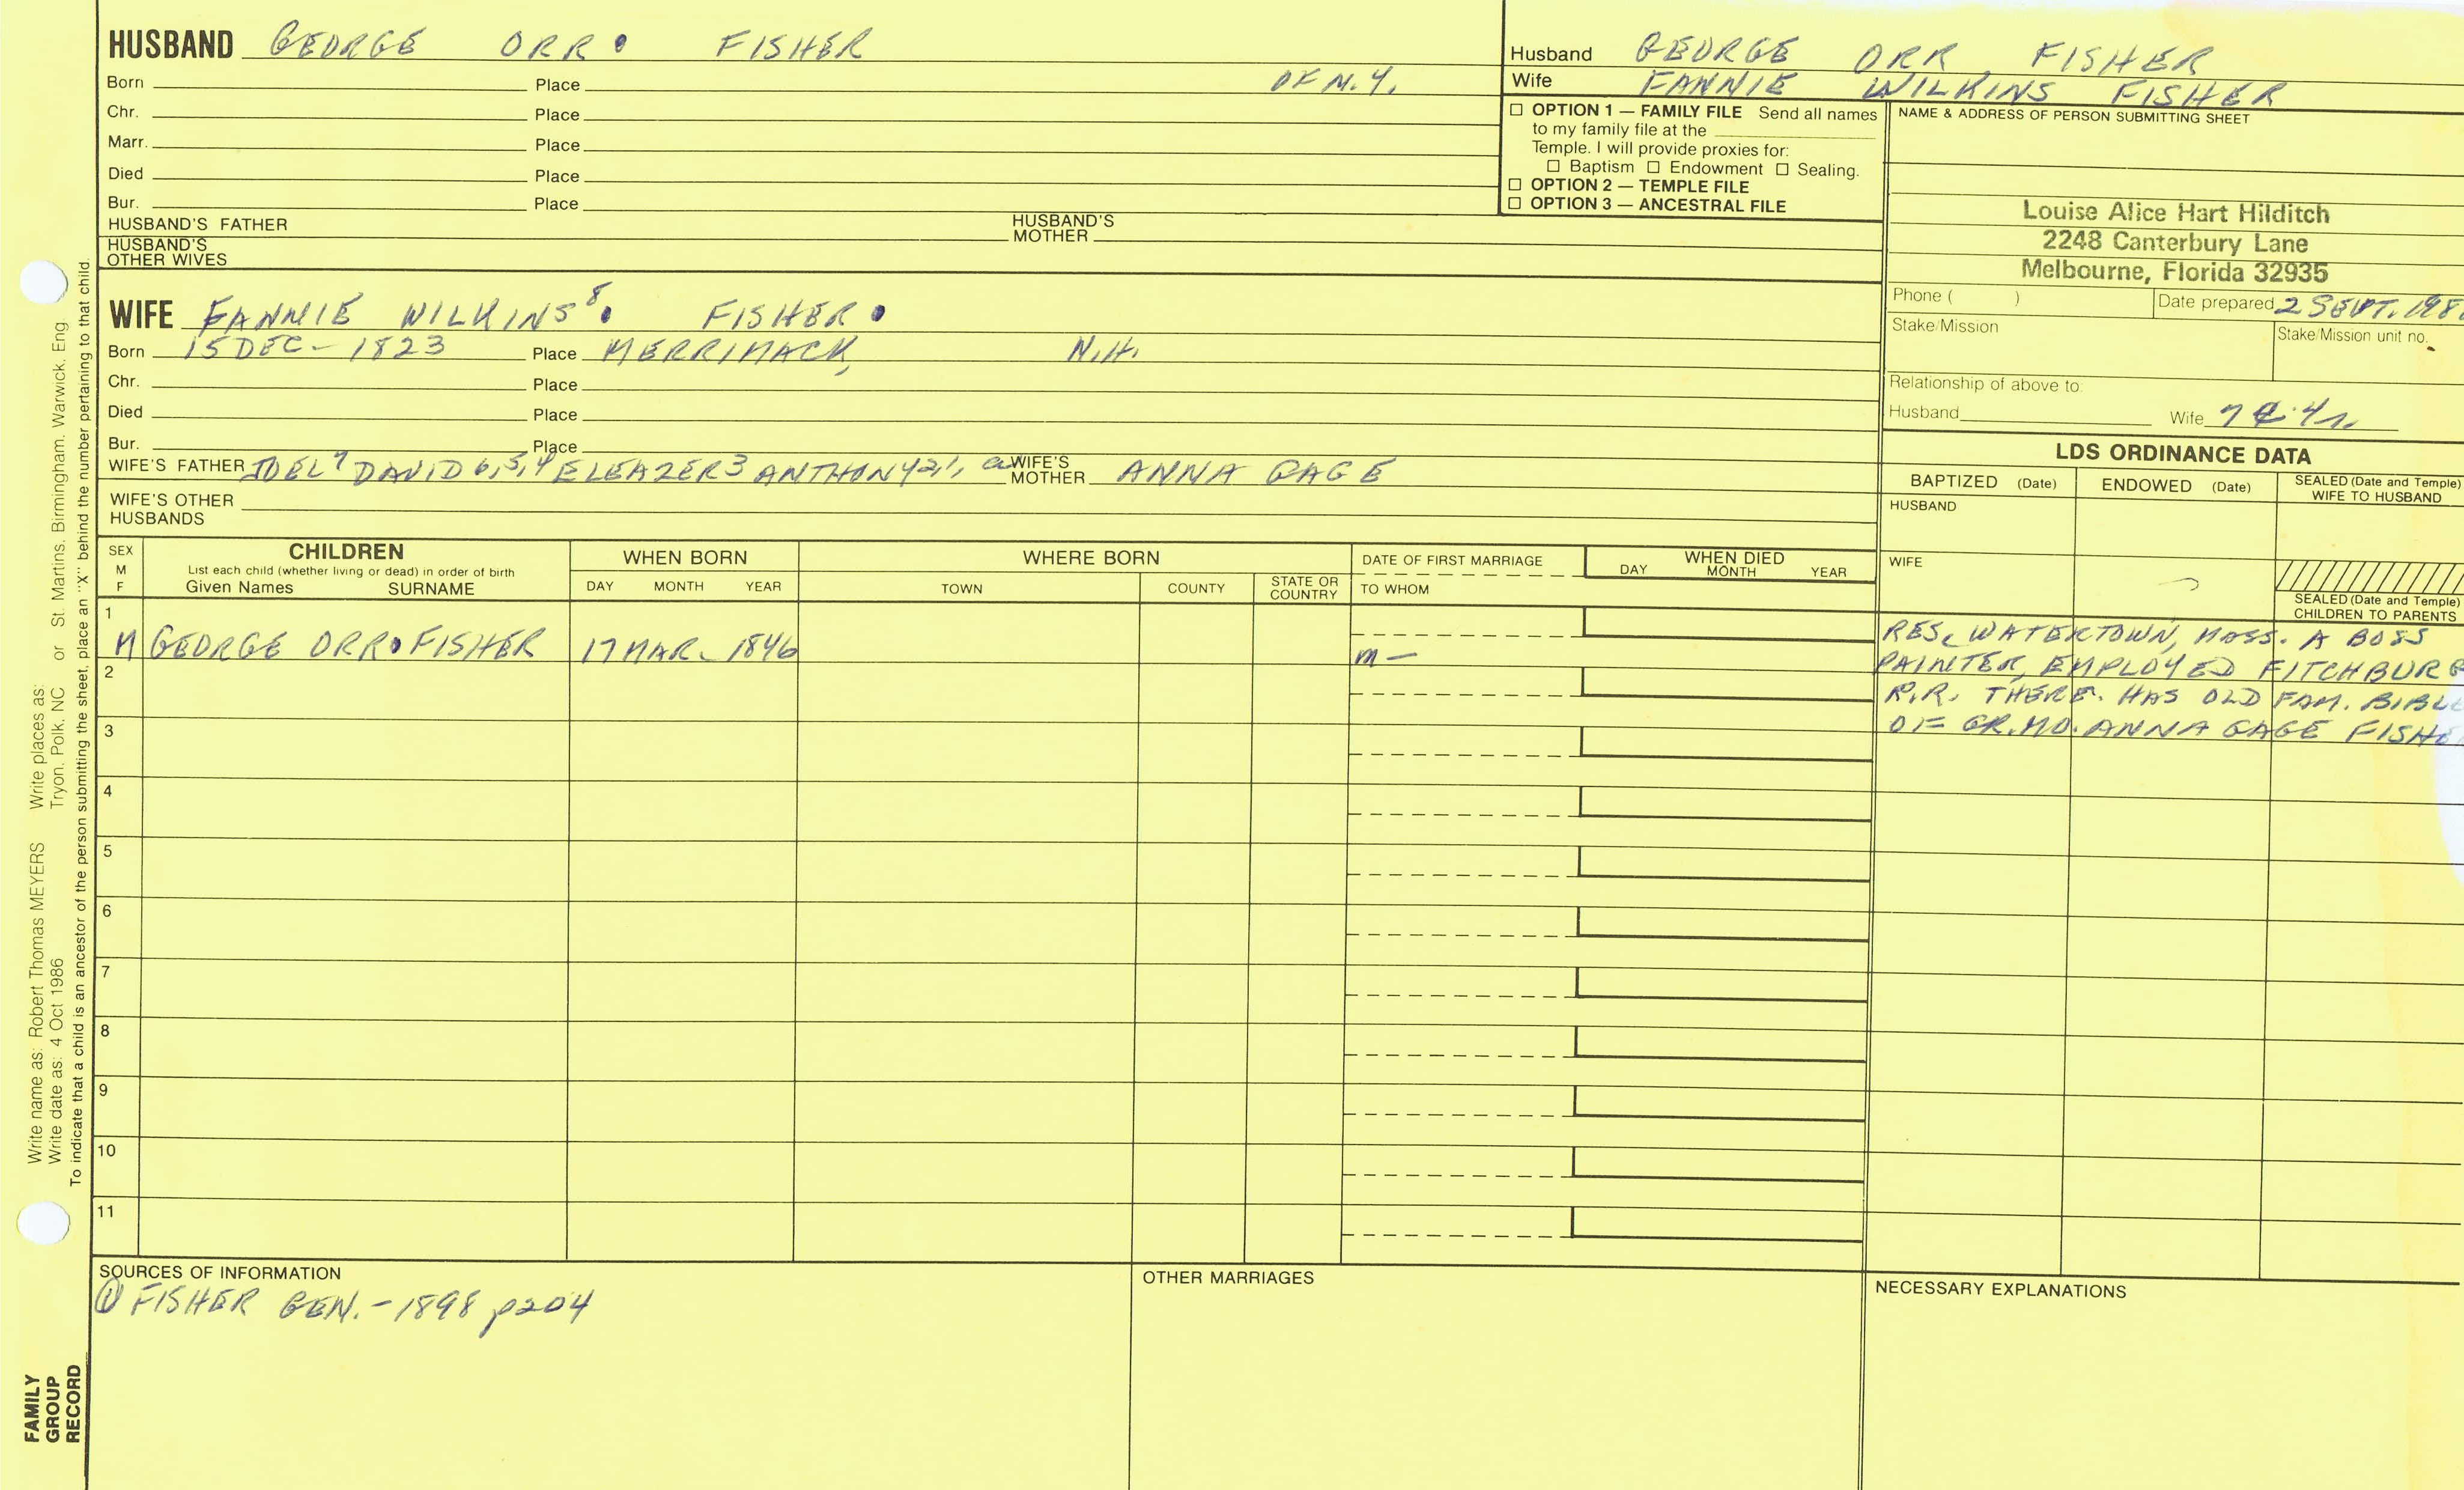 HUSBAND GEORGE ORR. FISHER
Born Place OF N.Y.
Chr. Place
Marr. Place
Died Place
Bur. Place
HUSBAND'S FATHER HUSBAND'S MOTHER
HUSBAND'S OTHER WIVES
Husband GEORGE ORR FISHER
Wife FANNIE WILKINS FISHER
☐ OPTION 1 — FAMILY FILE Send all names
to my family file at the
Temple. I will provide proxies for:
☐ Baptism ☐ Endowment ☐ Sealing.
☐ OPTION 2 — TEMPLE FILE
☐ OPTION 3 — ANCESTRAL FILE
NAME & ADDRESS OF PERSON SUBMITTING SHEET
Louise Alice Hart Hilditch
2248 Canterbury Lane
Melbourne, Florida 32935
Phone ( )
Date prepared 2 SEPT. 198
Stake/Mission
Stake/Mission unit no.
Relationship of above to:
Husband Wife
WIFE FANNIE WILKINS 8. FISHER.
Born 15 DEC - 1823 Place MERRIMACK, N.H.
Chr. Place
Died Place
Bur. Place
WIFE'S FATHER JOEL 7 DAVID 6,5,4 ELEAZER 3 ANTHONY 2,1, WIFE'S MOTHER ANNA GAGE
WIFE'S OTHER HUSBANDS
LDS ORDINANCE DATA
BAPTIZED (Date) ENDOWED (Date) SEALED (Date and Temple) WIFE TO HUSBAND
HUSBAND
WIFE
SEALED (Date and Temple) CHILDREN TO PARENTS
SEX M F
CHILDREN
List each child (whether living or dead) in order of birth
Given Names SURNAME
WHEN BORN
DAY MONTH YEAR
WHERE BORN
TOWN COUNTY STATE OR COUNTRY
DATE OF FIRST MARRIAGE
TO WHOM
WHEN DIED
DAY MONTH YEAR
1
M GEORGE ORR. FISHER 17 MAR. 1846 m—
RES. WATERTOWN, MASS. A BOSS
PAINTER, EMPLOYED FITCHBURG
R.R. THERE. HAS OLD FAM. BIBLE
OF GR. MO. ANNA GAGE FISHE
2
3
4
5
6
7
8
9
10
11
SOURCES OF INFORMATION
① FISHER GEN. - 1898 p204
OTHER MARRIAGES
NECESSARY EXPLANATIONS
Write name as: Robert Thomas MEYERS Write places as: St. Martins, Birmingham, Warwick, Eng
Write date as: 4 Oct 1986 Tryon, Polk, NC or
To indicate that a child is an ancestor of the person submitting the sheet, place an "X" behind the number pertaining to that child.
FAMILY
GROUP
RECORD